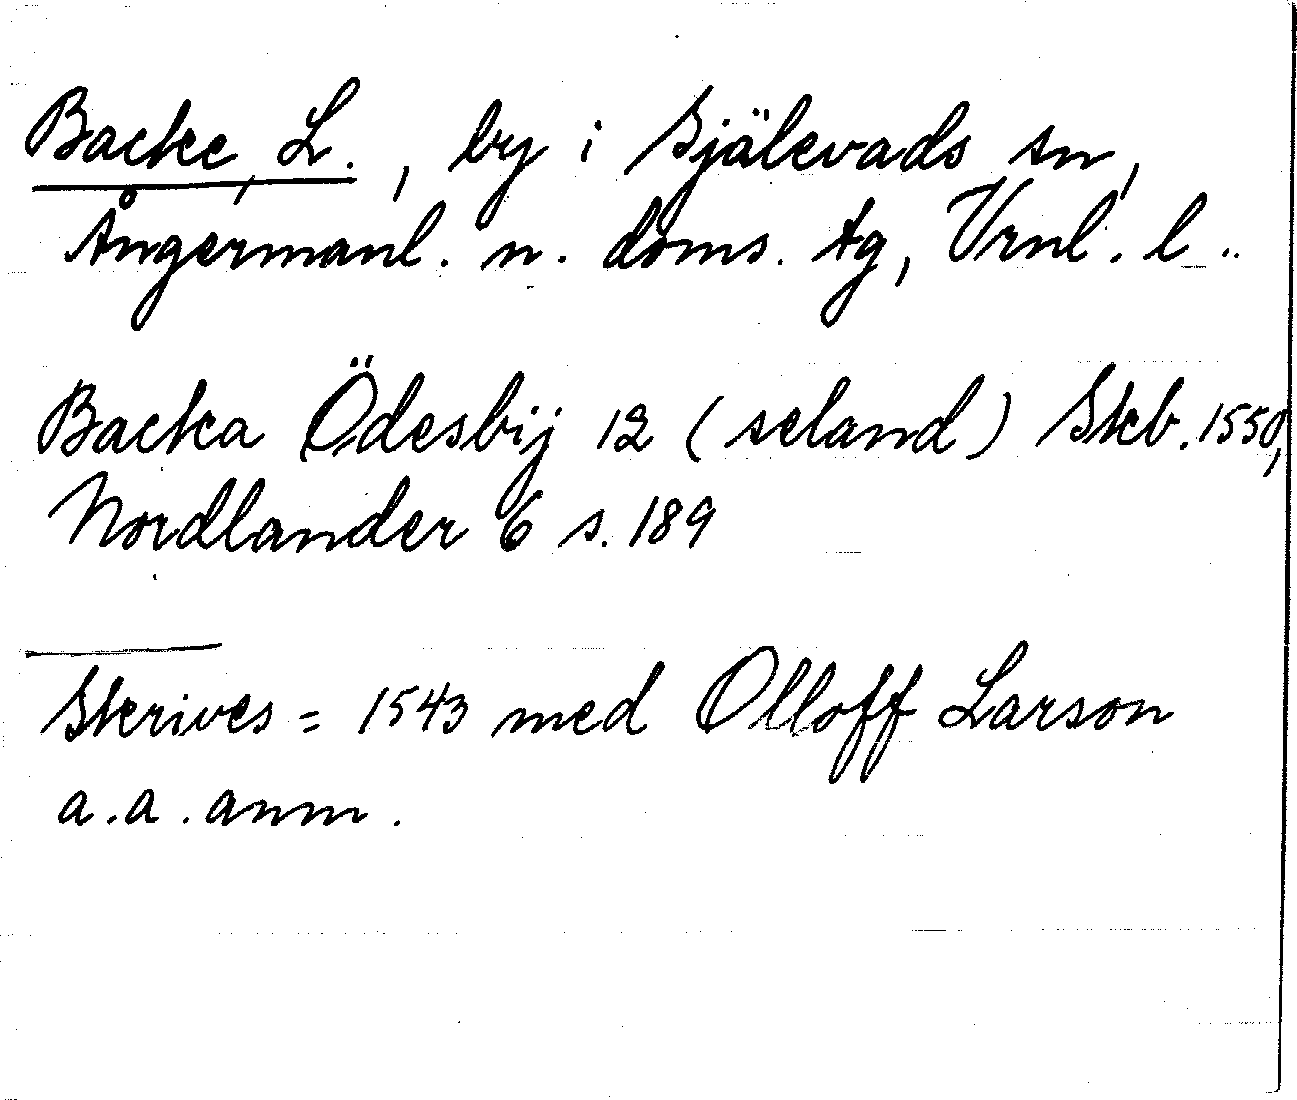 Backe, L., by i Själevads sn,
Ångermanl. n. doms. tg, Vrnl. l..
Backa Ödesbij 12 (seland) Skb. 1550,
Nordlander 6 s. 189
Skrives = 1543 med Olloff Larson
a.a. anm.